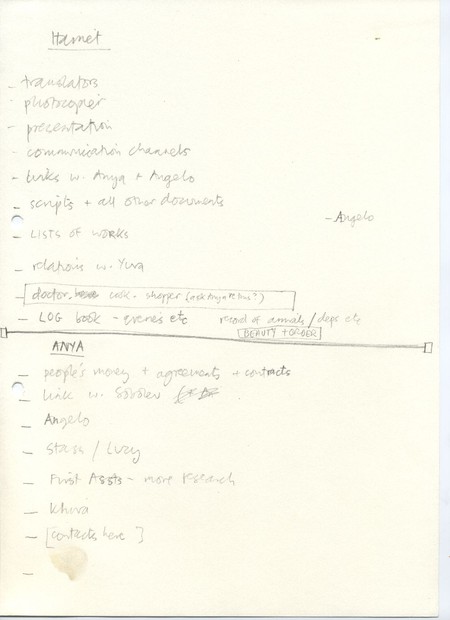 Harriet
- translators
- photocopier
- presentation
- communication channels
- links w. Anya + Angelo
- scripts + all other documents
- Angelo
- LISTS OF WORKS
- relations w. Yura
- doctor. cook. shopper
- LOG book - events etc record of arrivals/deps etc
BEAUTY + ORDER
ANYA
- people's money + agreements + contracts
- Link w. Sobolev
- Angelo
- Stass / Lucy
- First Assts - more research
- Khira
- [contacts here]
-